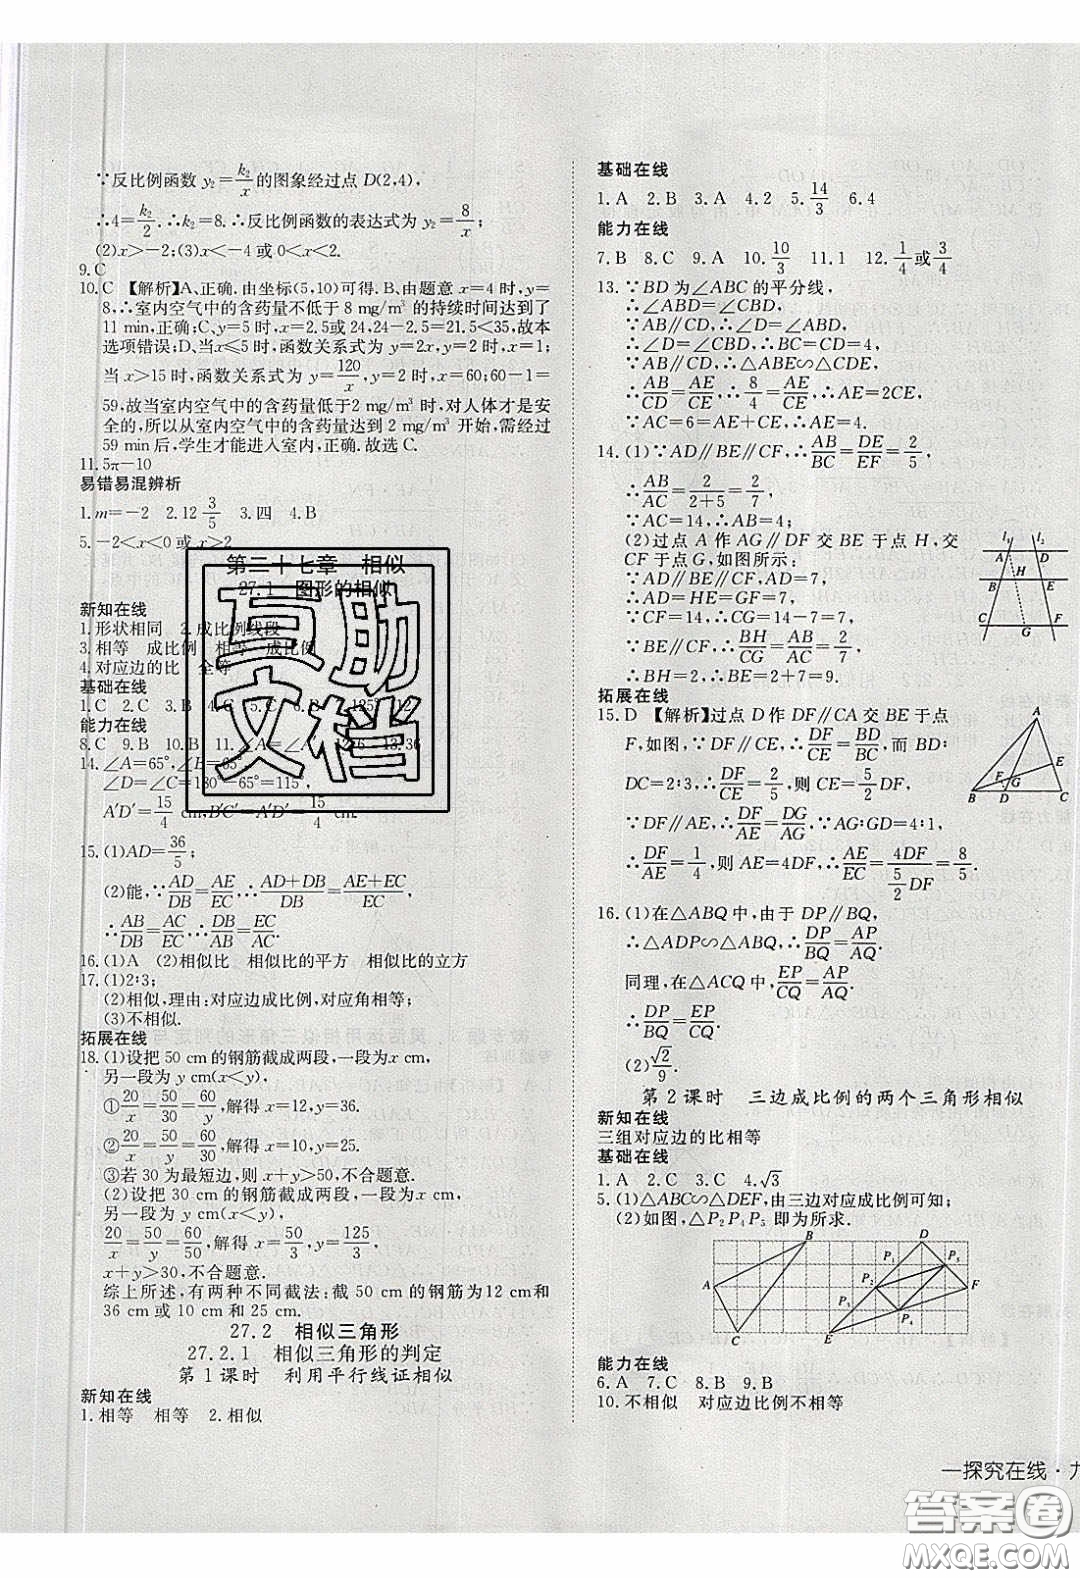 ∵反比例函数 y₂=k₂/x 的图象经过点 D(2,4),
∴4=k₂/2.∴k₂=8.∴反比例函数的表达式为 y₂=8/x;
(2)x>-2;(3)x<-4 或 0<x<2.
9.C
10.C 【解析】A、正确.由坐标(5,10)可得.B、由题意 x=4 时,y=
8,∴室内空气中的含药量不低于 8 mg/m³ 的持续时间达到了
11 min,正确;C、y=5 时,x=2.5或24,24-2.5=21.5<35,故本
选项错误;D、当 x≤5 时,函数关系式为 y=2x,y=2 时,x=1;
当 x>15 时,函数关系式为 y=120/x,y=2 时,x=60;60-1=
59,故当室内空气中的含药量不低于2 mg/m³ 时,对人体才是安
全的,所以从室内空气中的含药量达到 2 mg/m³ 开始,需经过
59 min 后,学生才能进入室内,正确.故选 C.
11.5π-10
易错易混辨析
1.m=-2 2.12 3/5 3.四 4.B
5.-2<x<0 或 x>2
第二十七章 相似
27.1 图形的相似
新知在线
1.形状相同 2.成比例线段
3.相等 成比例 相等 成比例
4.对应边的比 全等
基础在线
1.C 2.C 3.B 4.C 5.C
能力在线
8.C 9.B 10.B 11.
14.∠A=65°,∠B'=65°
∠D=∠C=180°-65°=115°,
A'D'=15/4 cm,B'C'=A'D'=15/4 cm.
15.(1)AD=36/5;
(2)能,∵AD/DB=AE/EC,∴(AD+DB)/DB=(AE+EC)/EC,
∴AB/DB=AC/EC,∴DB/AB=EC/AC.
16.(1)A (2)相似比 相似比的平方 相似比的立方
17.(1)2∶3;
(2)相似,理由:对应边成比例,对应角相等;
(3)不相似.
拓展在线
18.(1)设把 50 cm 的钢筋截成两段,一段为x cm,
另一段为 y cm(x<y).
①20/x=50/30=60/y,解得 x=12,y=36.
②20/x=50/y=60/30,解得 x=10,y=25.
③若 30 为最短边,则 x+y>50,不合题意.
(2)设把 30 cm 的钢筋截成两段,一段为 x cm,
另一段为 y cm(x<y).
20/x=50/y=60/50,解得 x=50/3,y=125/3,
x+y>30,不合题意.
综上所述,有两种不同截法:截 50 cm 的钢筋为12 cm和
36 cm 或 10 cm 和 25 cm.
27.2 相似三角形
27.2.1 相似三角形的判定
第 1 课时 利用平行线证相似
新知在线
1.相等 相等 2.相似
基础在线
1.A 2.B 3.A 4.2 5.14/3 6.4
能力在线
7.B 8.C 9.A 10.10/3 11.1 12.1/4或3/4
13.∵BD为∠ABC的平分线,
∴∠ABD=∠CBD,
∵AB∥CD,∴∠D=∠ABD,
∴∠D=∠CBD,∴BC=CD=4.
∵AB∥CD,∴△ABE∽△CDE,
∴AB/CD=AE/CE,∴8/4=AE/CE,∴AE=2CE,
∵AC=6=AE+CE,∴AE=4.
14.(1)∵AD∥BE∥CF,∴AB/BC=DE/EF=2/5,
∴AB/AC=2/(2+5)=2/7,
∵AC=14,∴AB=4;
(2)过点 A 作 AG∥DF 交 BE 于点 H,交
CF于点 G,如图所示:
∵AD∥BE∥CF,AD=7,
∴AD=HE=GF=7,
∵CF=14,∴CG=14-7=7,
∵BE∥CF,∴BH/CG=AB/AC=2/7,
∴BH=2,∴BE=2+7=9.
l₁ l₂ A D B H E C G F
拓展在线
15.D 【解析】过点 D 作 DF∥CA 交 BE 于点
F,如图,∵DF∥CE,∴DF/CE=BD/BC,而 BD∶
DC=2∶3,∴DF/CE=2/5,则 CE=5/2DF,
∵DF∥AE,∴DF/AE=DG/AG,∵AG∶GD=4∶1,
∴DF/AE=1/4,则 AE=4DF,∴AE/CE=4DF/(5/2 DF)=8/5.
A E F G B D C
16.(1)在△ABQ 中,由于 DP∥BQ,
∴△ADP∽△ABQ,∴DP/BQ=AP/AQ.
同理,在△ACQ 中,EP/CQ=AP/AQ.
∴DP/BQ=EP/CQ;
(2)√2/9.
第 2 课时 三边成比例的两个三角形相似
新知在线
三组对应边的比相等
基础在线
1.A 2.C 3.C 4.√3
5.(1)△ABC∽△DEF,由三边对应成比例可知;
(2)如图,△P₂P₄P₅ 即为所求.
B D P₁ P₅ A P₂ F P₃ P₄ C E
能力在线
6.A 7.C 8.B 9.B
10.不相似 对应边比例不相等
一探究在线·九
互助
文档
答案圈
MXQE.COM